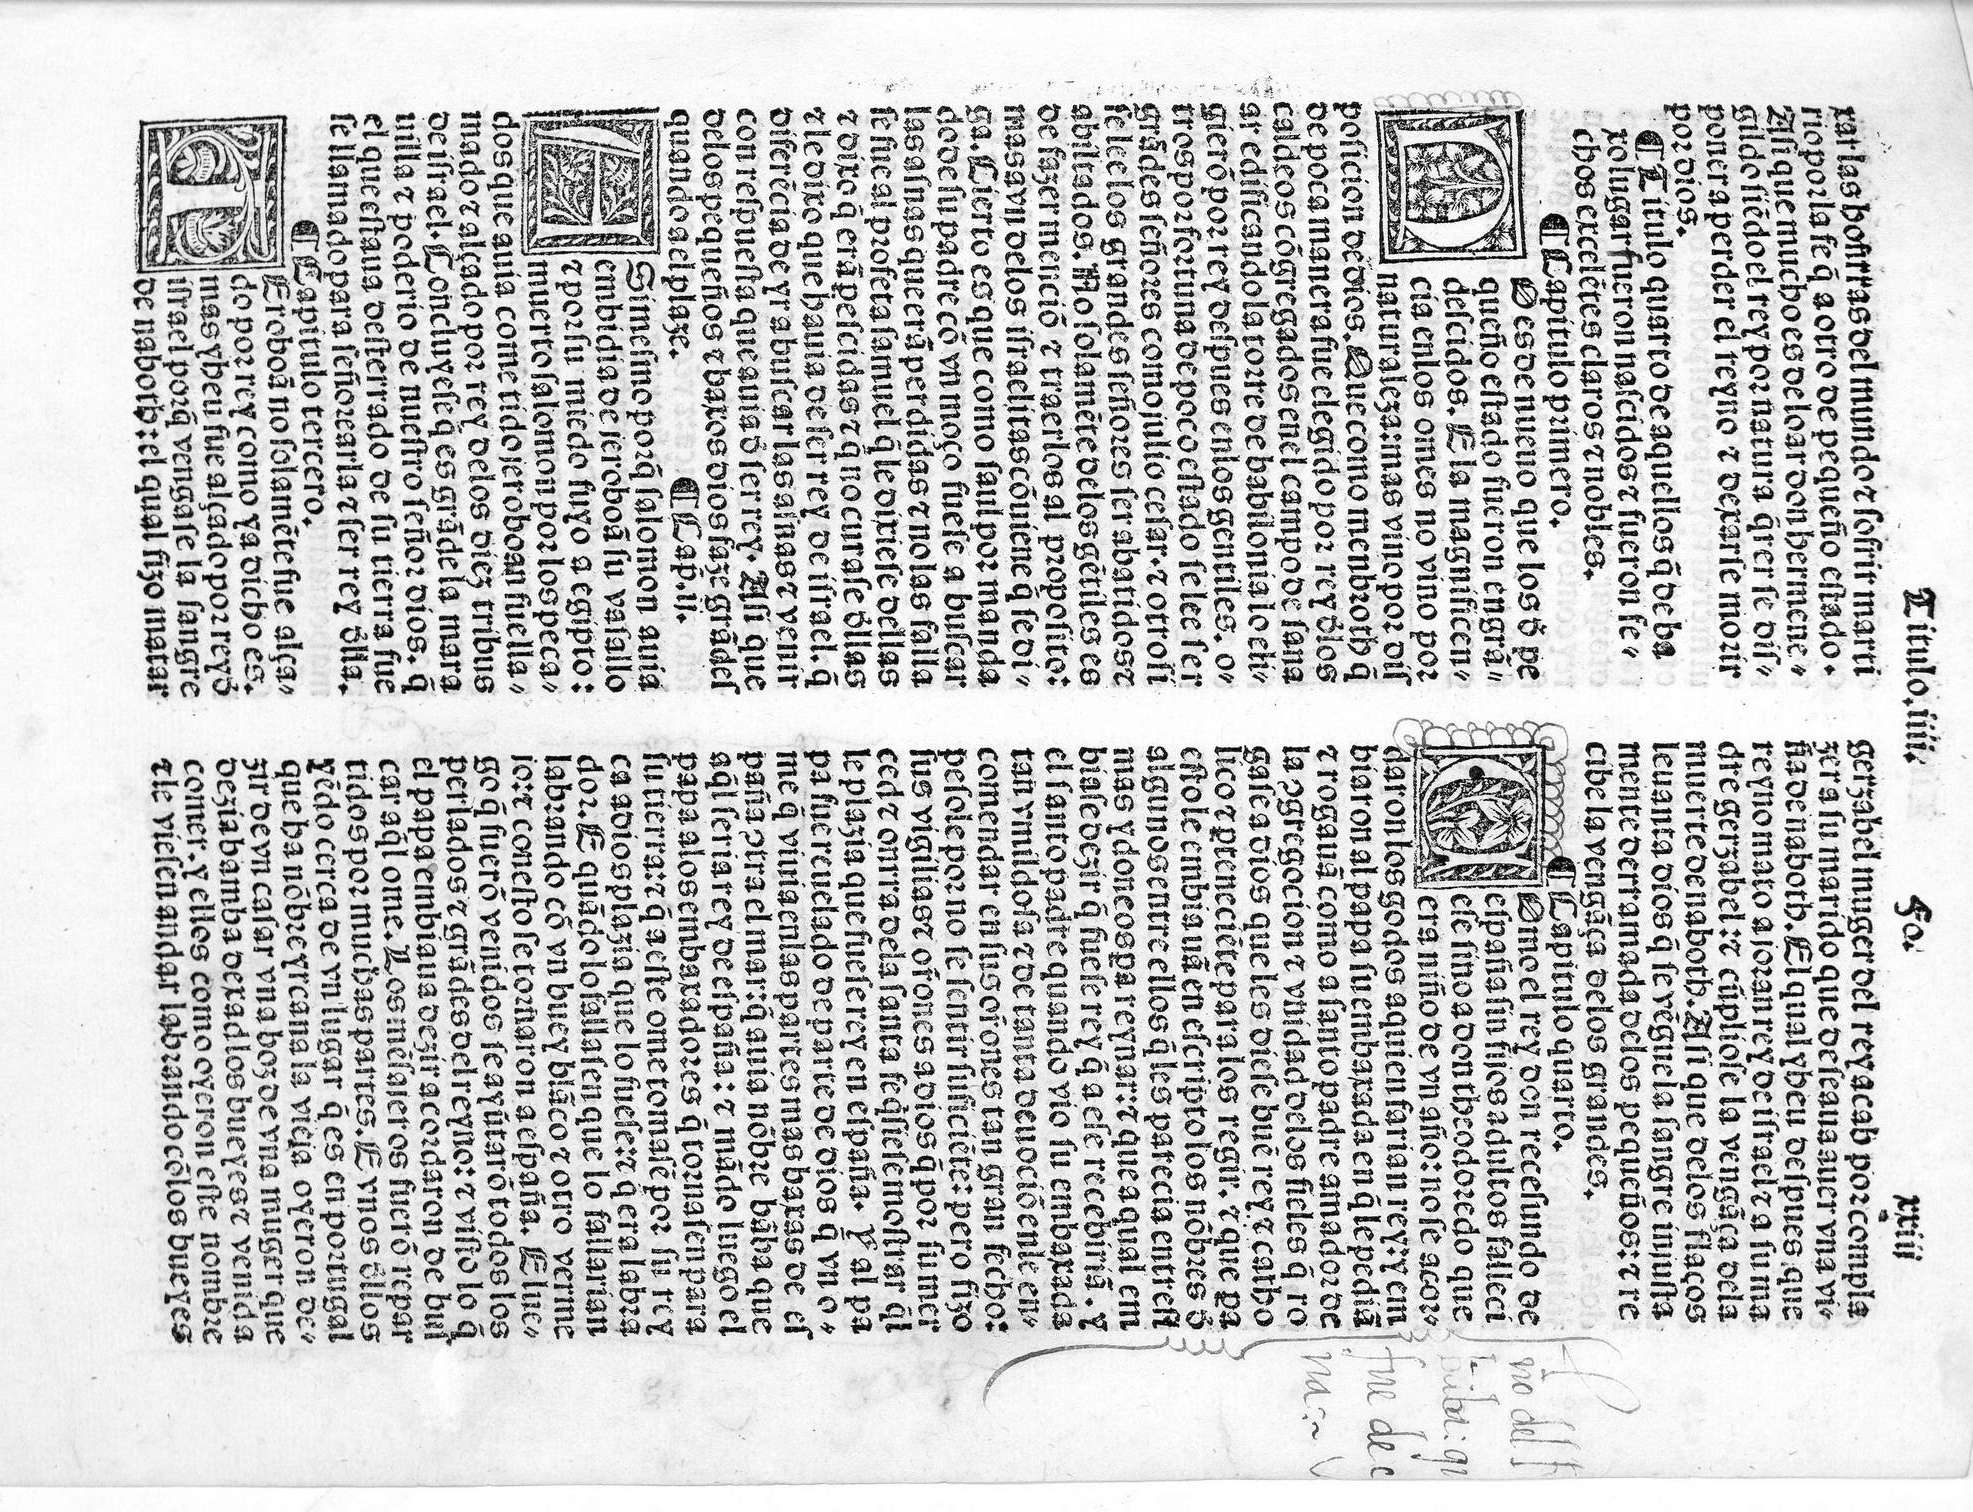 Titulo.iiii. Fo. xxiii
rar las honrras del mundo ⁊ sofrir marti
rio por la fe q̃ a otro de pequeño estado.
Assi que mucho es de loar don hermene⸗
gildo siẽdo el rey por natura q̃rer se dis⸗
poner a perder el reyno ⁊ dexarse morir
por dios.
¶Titulo quarto de aquellos q̃ de ba
xo lugar fueron nascidos ⁊ fueron fe⸗
chos excelẽtes claros ⁊ nobles.
¶Capitulo primero.
Desde nueuo que los d̃ pe
queño estado fueron en grã⸗
des scidos. E la magnificen⸗
cia en los omes no vino por
naturaleza: mas vino por dis
posicion de dios. Que como menbroth q̃
de poca manera fue elegido por rey d̃los
caldeos cõgregados en el campo de sana
ar edificando la torre de babilonia lo eli⸗
gierõ por rey despues en los gentiles. o⸗
tros por fortuna de poco estado se lee ser
grãdes señores como julio cesar. ⁊ otrosi
se lee los grandes señores ser abatidos ⁊
abiltados. No solamẽte de los gẽtiles es
de fazer menciõ ⁊ traerlos al proposito:
mas avn de los israelitas cõuiene q̃ se di⸗
ga. Cierto es que como saul por manda
do de su padre cõ vn moço fuese a buscar
las asnas que erã perdidas ⁊ no las falla
se fue al profeta samuel q̃ le dixiese dellas
⁊ dixo q̃ erã pescidas ⁊ q̃ no curase d̃llas
⁊ le dixo que hauia de ser rey de israel. q̃
diferẽcia de yr a buscar las asnas ⁊ venir
con respuesta que auia d̃ ser rey. Asi que
de los pequeños ⁊ baxos dios faze grãdes
quando a el plaze.
¶Cap.ii.
Si mesmo porq̃ salomon auia
embidia de ieroboã su vasallo
⁊ por su miedo fuyo a egipto:
muerto salomon por los peca⸗
dos que auia cometido jeroboan fue lla⸗
mado ⁊ alçado por rey de los diez tribus
de israel. Concluyese q̃ es grãde la mara
uilla ⁊ poderio de nuestro señor dios. q̃
el que estaua desterrado de su tierra fue
se llamado para señorearla ⁊ ser rey d̃lla.
¶Capitulo tercero.
Eroboã no solamẽte fue alça⸗
do por rey como ya dicho es.
mas ybeu fue alçado por rey d̃
israel porq̃ vengase la sangre
de naboth: el qual fizo matar
gezabel muger del rey acab por compla
zer a su marido que deseaua auer vna vi⸗
ña de naboth. El qual ybeu despues que
reyno mato a joran rey de israel ⁊ a su ma
dre gezabel: ⁊ cũpliose la vengãça dela
muerte de naboth. Asi que de los flacos
leuanta dios q̃ se vẽgue la sangre iniusta
mente derramada de los pequeños: ⁊ re
cibe la vengãça delos grandes.
¶Capitulo quarto.
Omo el rey don recesundo de
españa sin fijos adultos falleci
ese sino a don theodoredo que
era niño de vn año: no se acor⸗
daron los godos a quien farian rey: y em
biaron al papa su embaxada en q̃ le pediã
⁊ rogauã como a santo padre amador de
la ꝯgregacion ⁊ vnidad delos fieles q̃ ro
gase a dios que les diese buẽ rey ⁊ catho
lico ⁊ ꝑteneciẽte para los regir. ⁊ que pa
esto le embiauã en escripto los nõbres d̃
algunos entre ellos q̃ les parecia entre si
mas ydoneos pa reynar: ⁊ que a qual em
biase dezir q̃ fuese rey q̃ a ese recebiriã. y
el santo padre quando vio su embaxada
tan vmildosa ⁊ de tanta deuociõ en le en⸗
comendar en sus oriones tan gran fecho:
pesole por no se sentir suficiẽte: pero fizo
sus vigilias ⁊ oriones a dios q̃ por su mer
ced ⁊ onrra dela santa fe q̃siese mostrar q̃l
le plazia que fuese rey en españa. y al pa
pa fue reuelado de parte de dios q̃ vn o⸗
me q̃ viuia en las partes mas baxas de es
paña ꝯtra el mar: q̃ auia nõbre bãba que
aq̃l seria rey de españa: ⁊ mãdo luego el
papa a los embaxadores q̃ tornasen para
su tierra: ⁊ q̃ a este ome tomasẽ por su rey
ca a dios plazia que lo fuese: ⁊ q̃ era labra
dor. E quãdo lo fallasen que lo fallarian
labrando cõ vn buey blãco ⁊ otro verme
jo: ⁊ con esto se tornaron a españa. E lue⸗
go q̃ fuerõ venidos se ayũtarõ todos los
perlados ⁊ grãdes del reyno: ⁊ visto lo q̃
el papa embiaua dezir acordaron de bus
car aq̃l ome. Los mẽsajeros fuerõ repar
tidos por muchas partes. E vnos d̃llos
yẽdo cerca de vn lugar q̃ es en portugal
que ha nõbre yrcana la vieja oyeron de⸗
zir de vn casar vna boz de vna muger que
dezia bamba dexad los bueyes ⁊ venid a
comer. y ellos como oyeron este nombre
⁊ le viesen andar labrando cõ los bueyes
no del
fue de
na